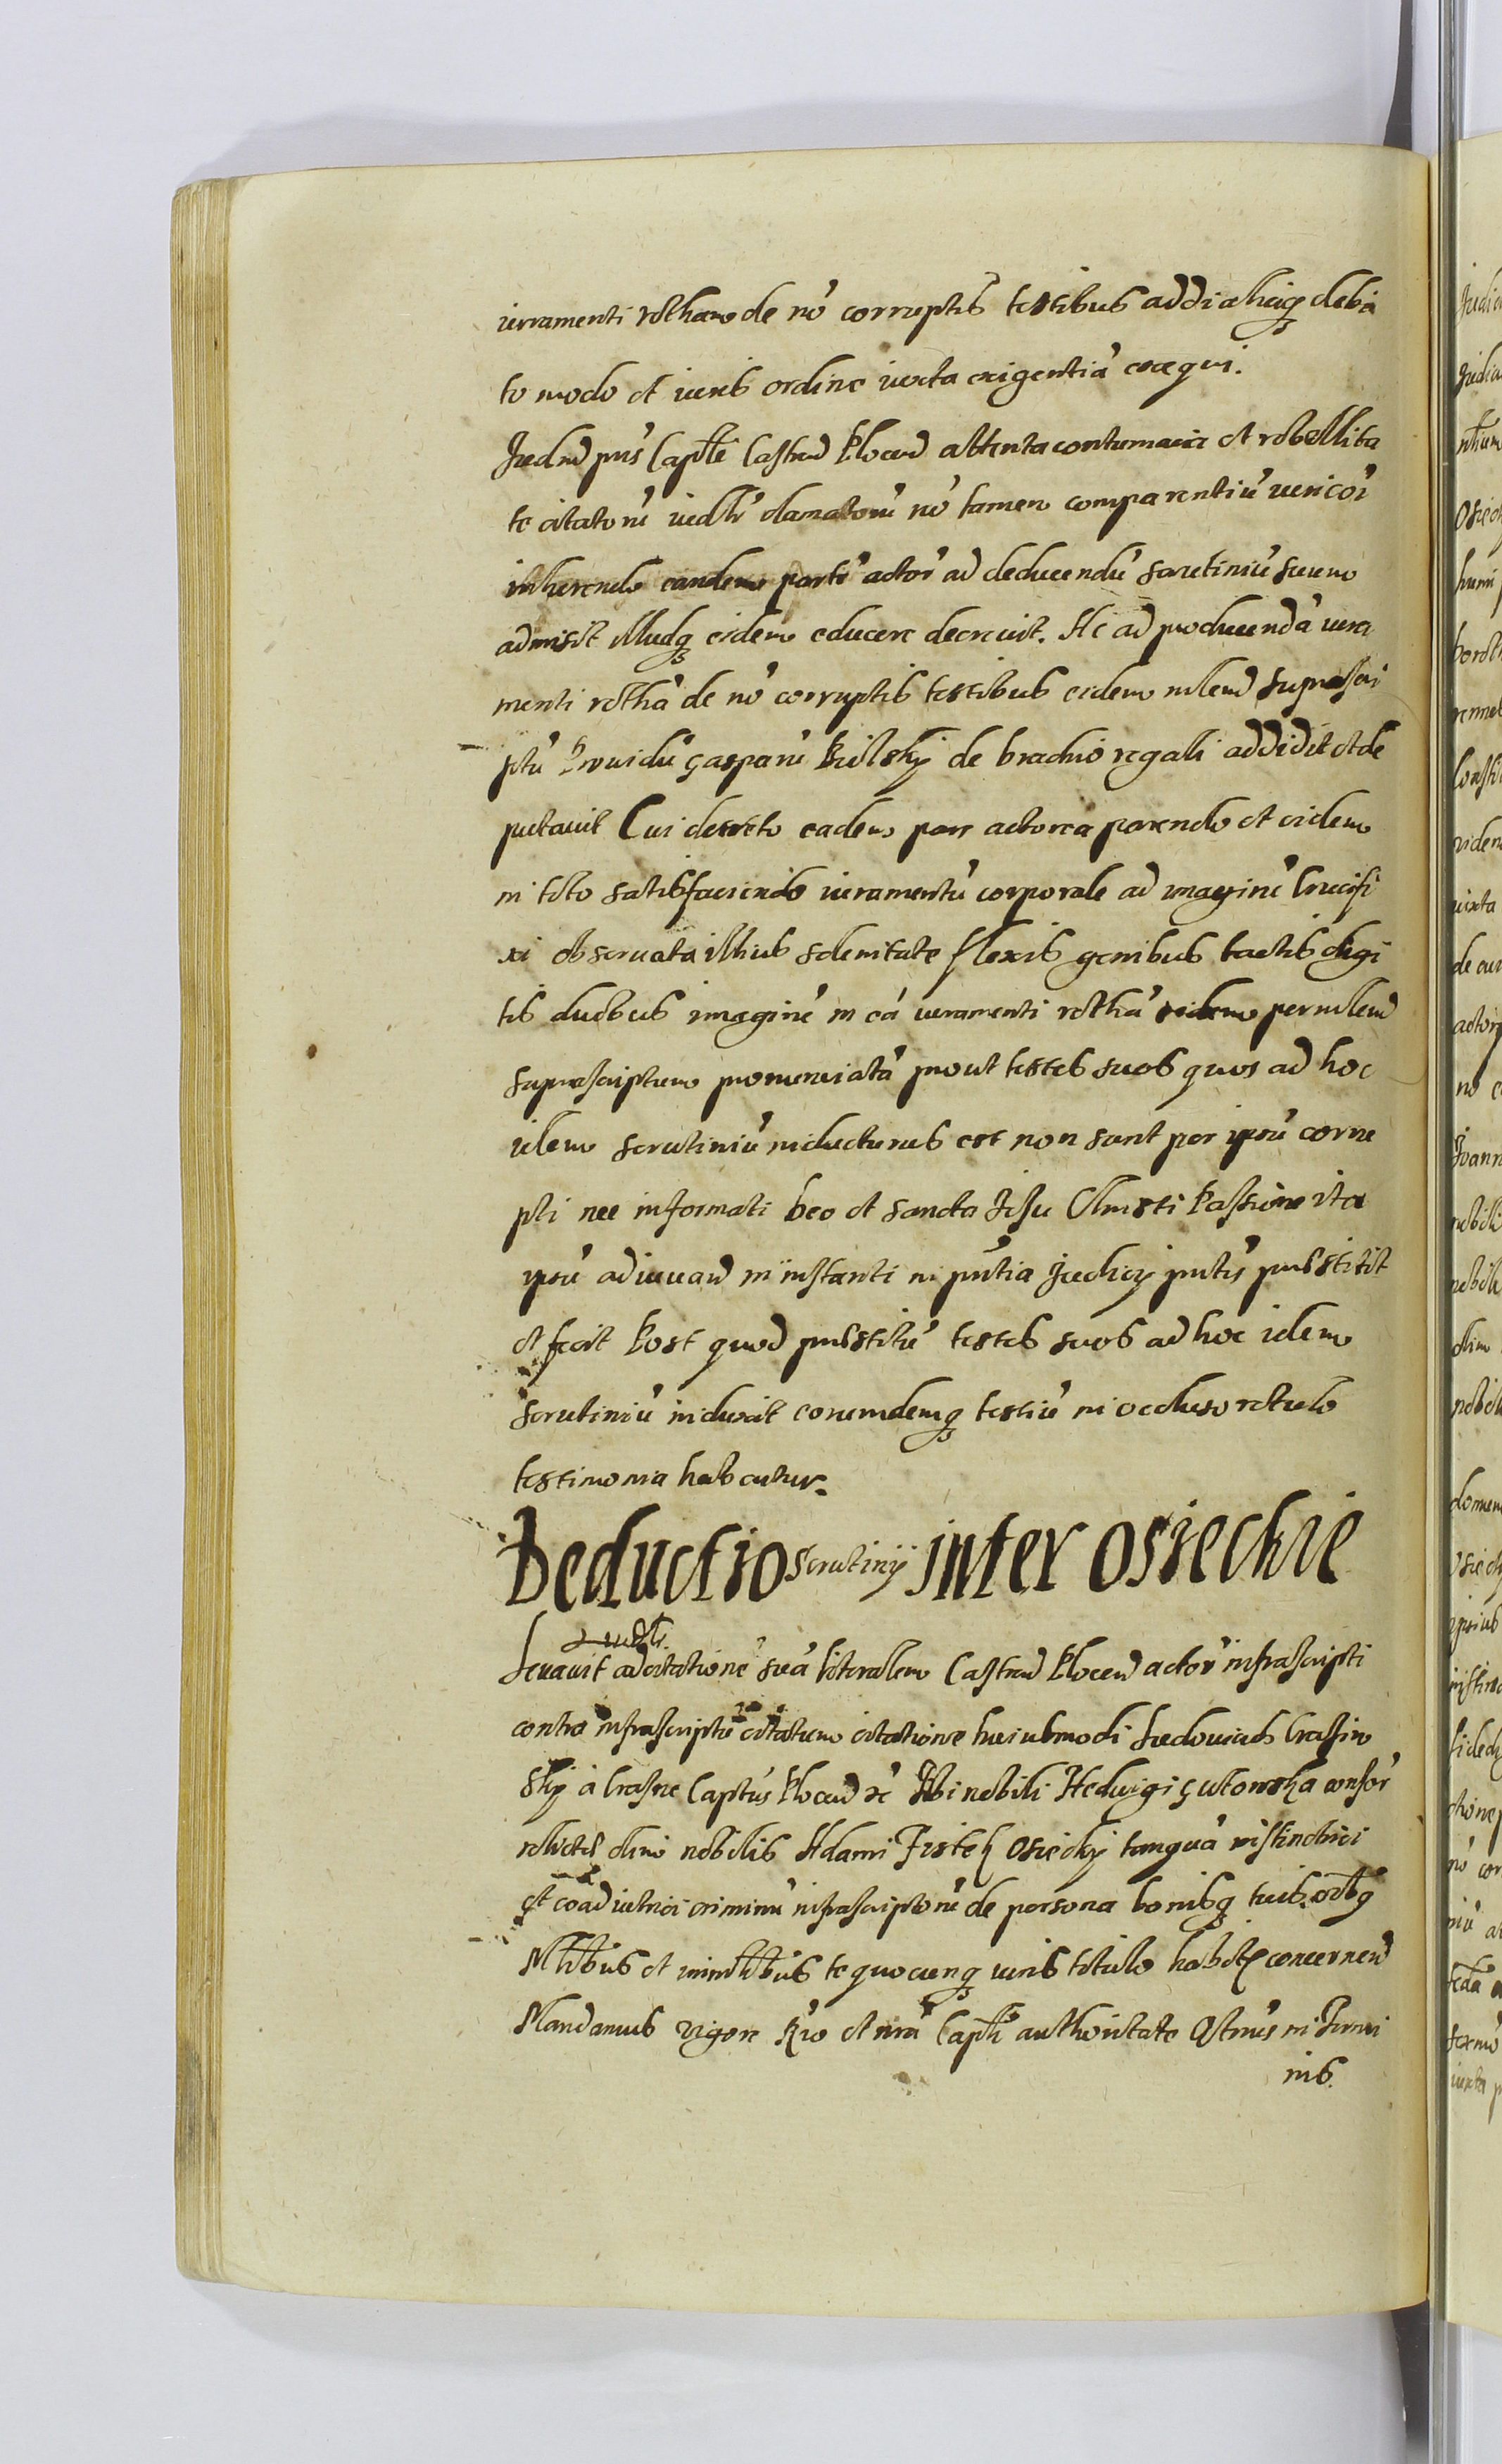 iuramenti rotham de nō corruptis testibus addi aliāq debi
to modo et iuris ordine iuxta exigentiā exequi.
Judm pns Caple Castren Plocen attenta contumacia et rebellita
te citatorū iudlr clamatorū nō tamen comparentiū iuri eōr
inherendo eandem partē actor ad deducendū scrutiniū suum
admisit illudq eidem educere decreuit. Ac ad producendā iura
menti rothā de nō corruptis testibus eidem mlem suprascri
ptū Prouidū Gasparū Bielsky de brachio regali addidit et de
putauit Cui decreto eadem pars actorea parendo et eidem
in toto satisfaciendo iuramentū corporale ad imaginē Crucifi
xi obseruata illius solenitate flexis genibus tactis digi
tis duobus imaginē in eā iuramenti rothā eidem per mlem
suprascriptum pronunciatā prout testes suos quos ad hoc
idem scrutiniū inducturus est non sunt per ipsū corru
pti nec informati Deo et sancta Jesu Christi Passione ita
ipsū adiuuan in instanti in pntia Judicy pntis prestitit
et fecit Post quod prestitū testes suos ad hoc idem
scrutiniū induxit eorumdemq testiū in occluso rotulo
testimonia habentur.
Deductio scrutinÿ inter osieckie
iudlr.
Leuauit ad citationē suā literalem Castren Plocen actor infrascripti
contra infrascriptū citatum citatione huiusmodi Ludouicus Crasin
sky a Crasne Captus Plocen rc Tibi nobili Heduigi Gutowska consor
relicte olim nobilis Adami Fistek Osiecky tanquā instinctrici
et coadiutrici criminū infrascriptorū de persona bonisq tuis oibq
Mltibus et inmltibus te quocunq iuris titulo habite concernen
Mandamus vigore Rio et nrā Capli authoritate Qtnus in Termi
nis.